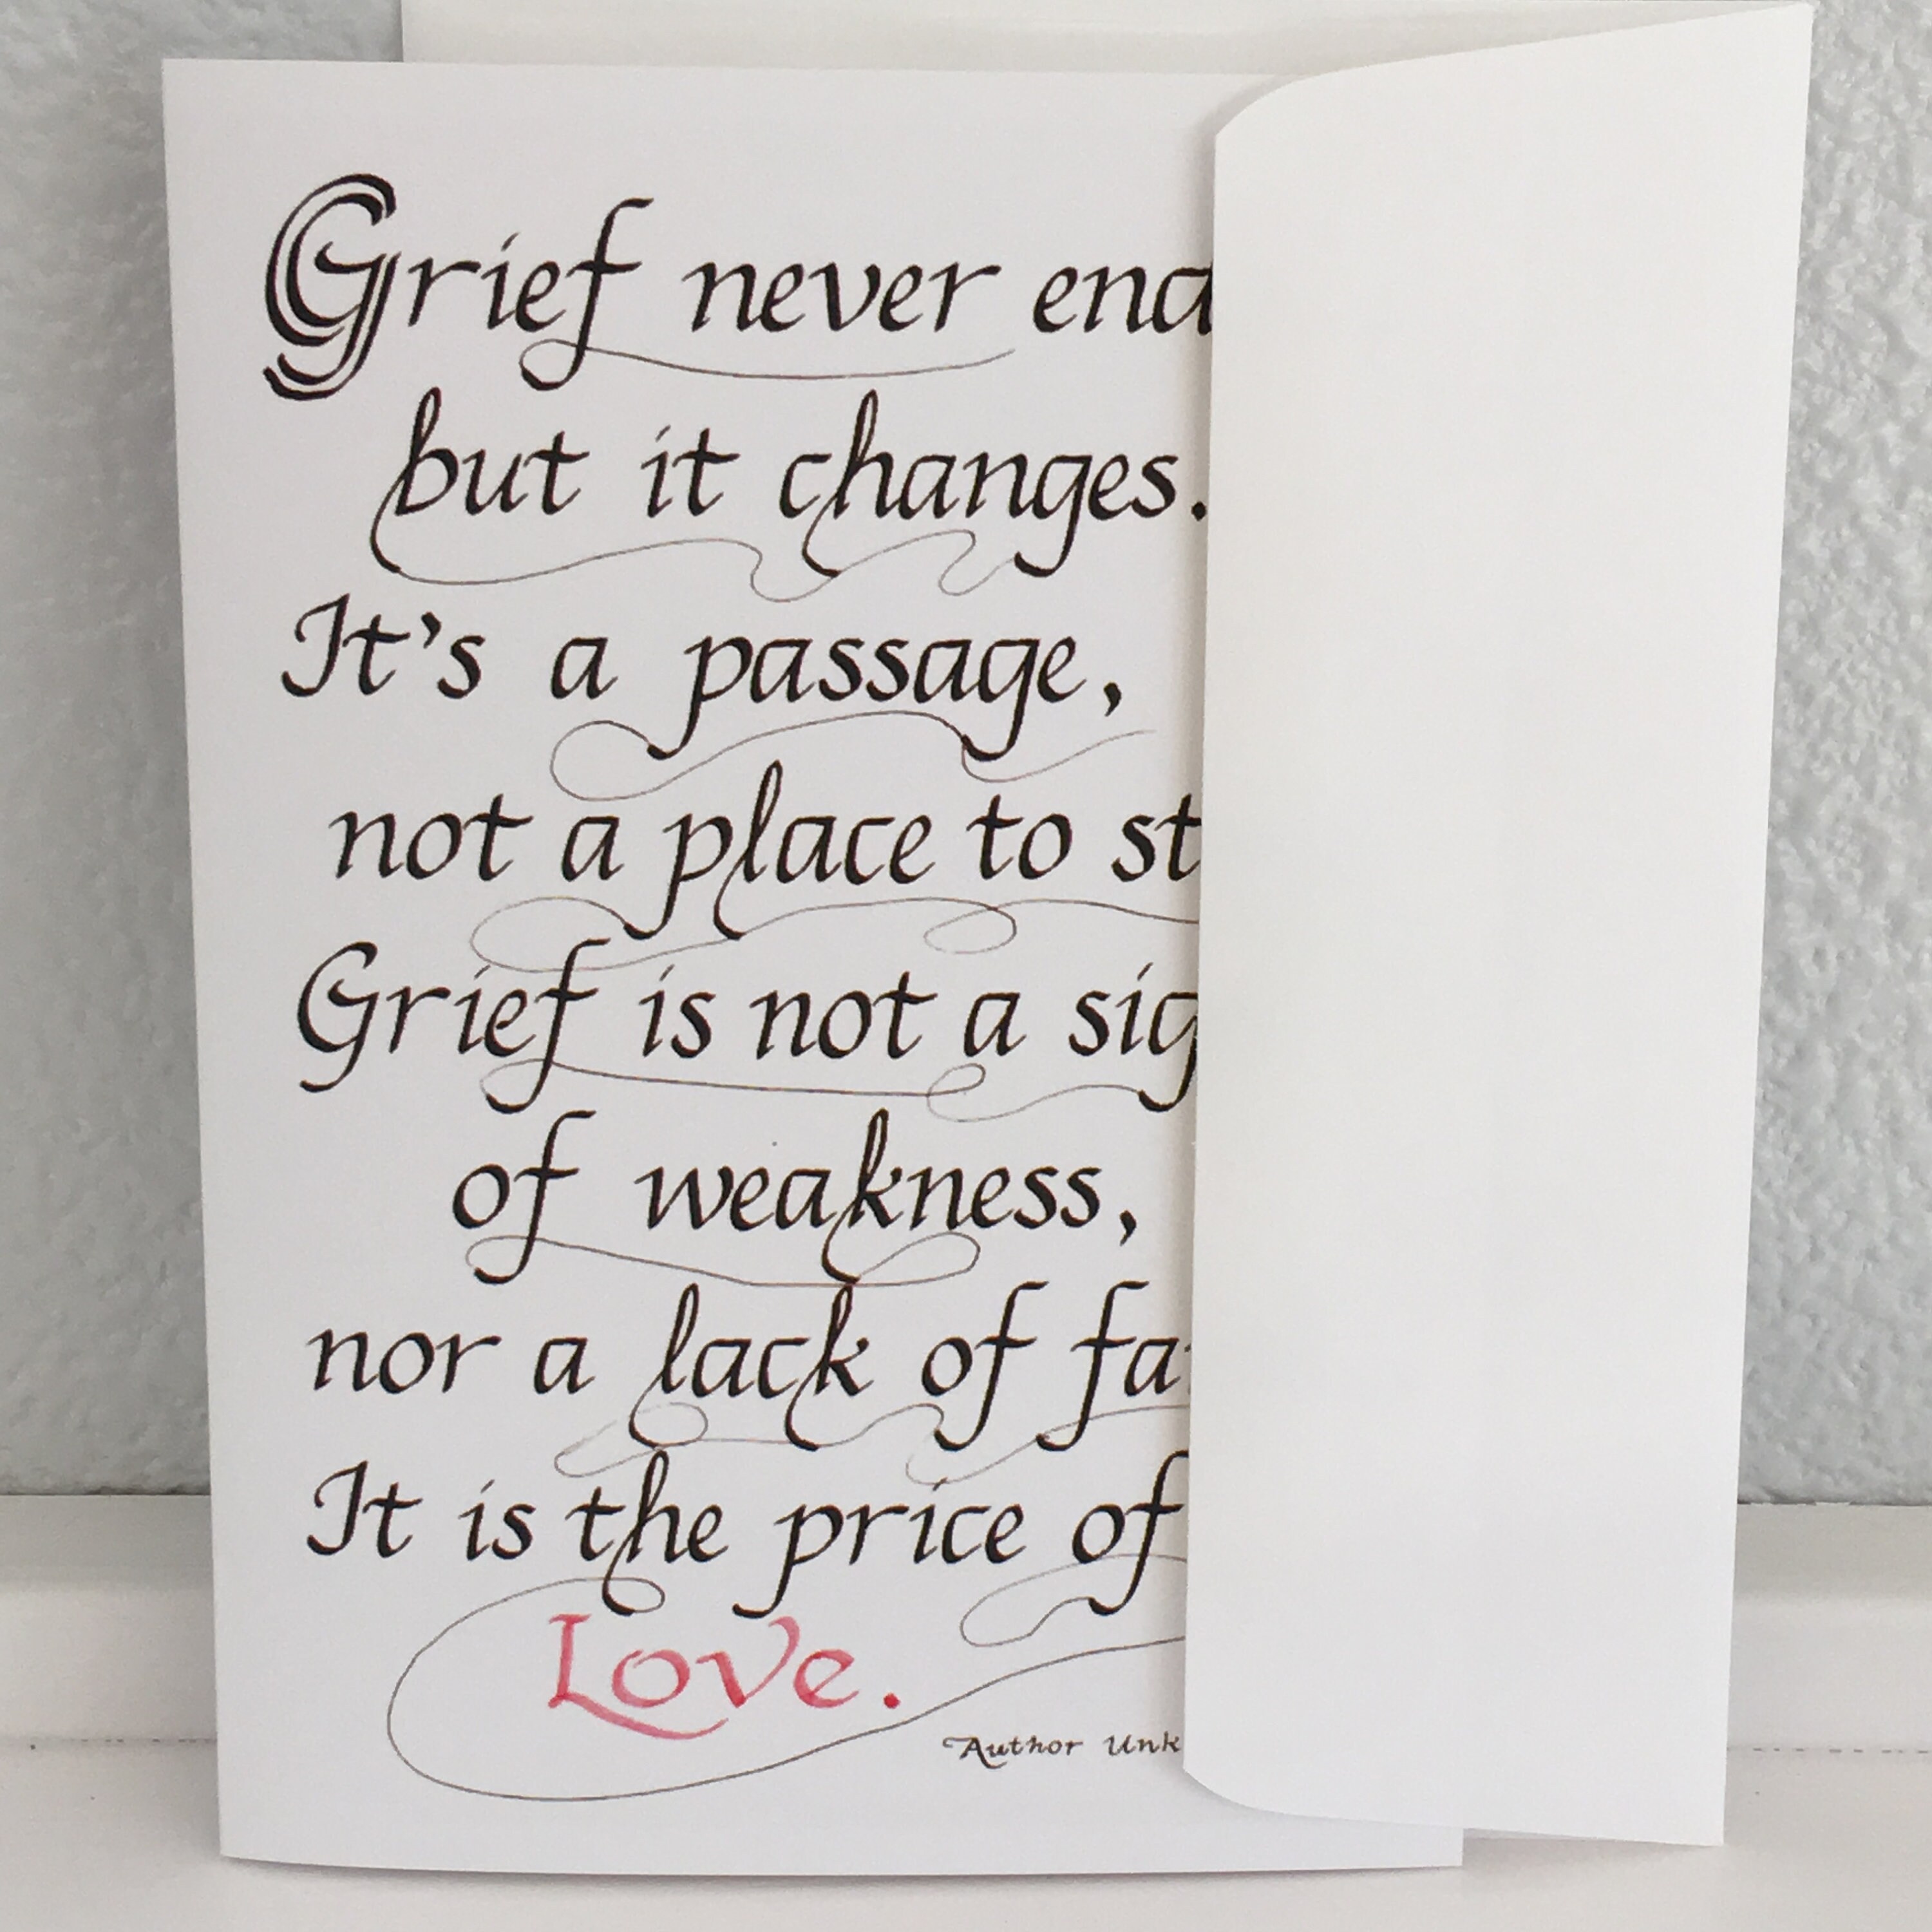 Grief never end
but it changes.
It's a passage,
not a place to st
Grief is not a sig
of weakness,
nor a lack of fa
It is the price of
Love.
Author Unk